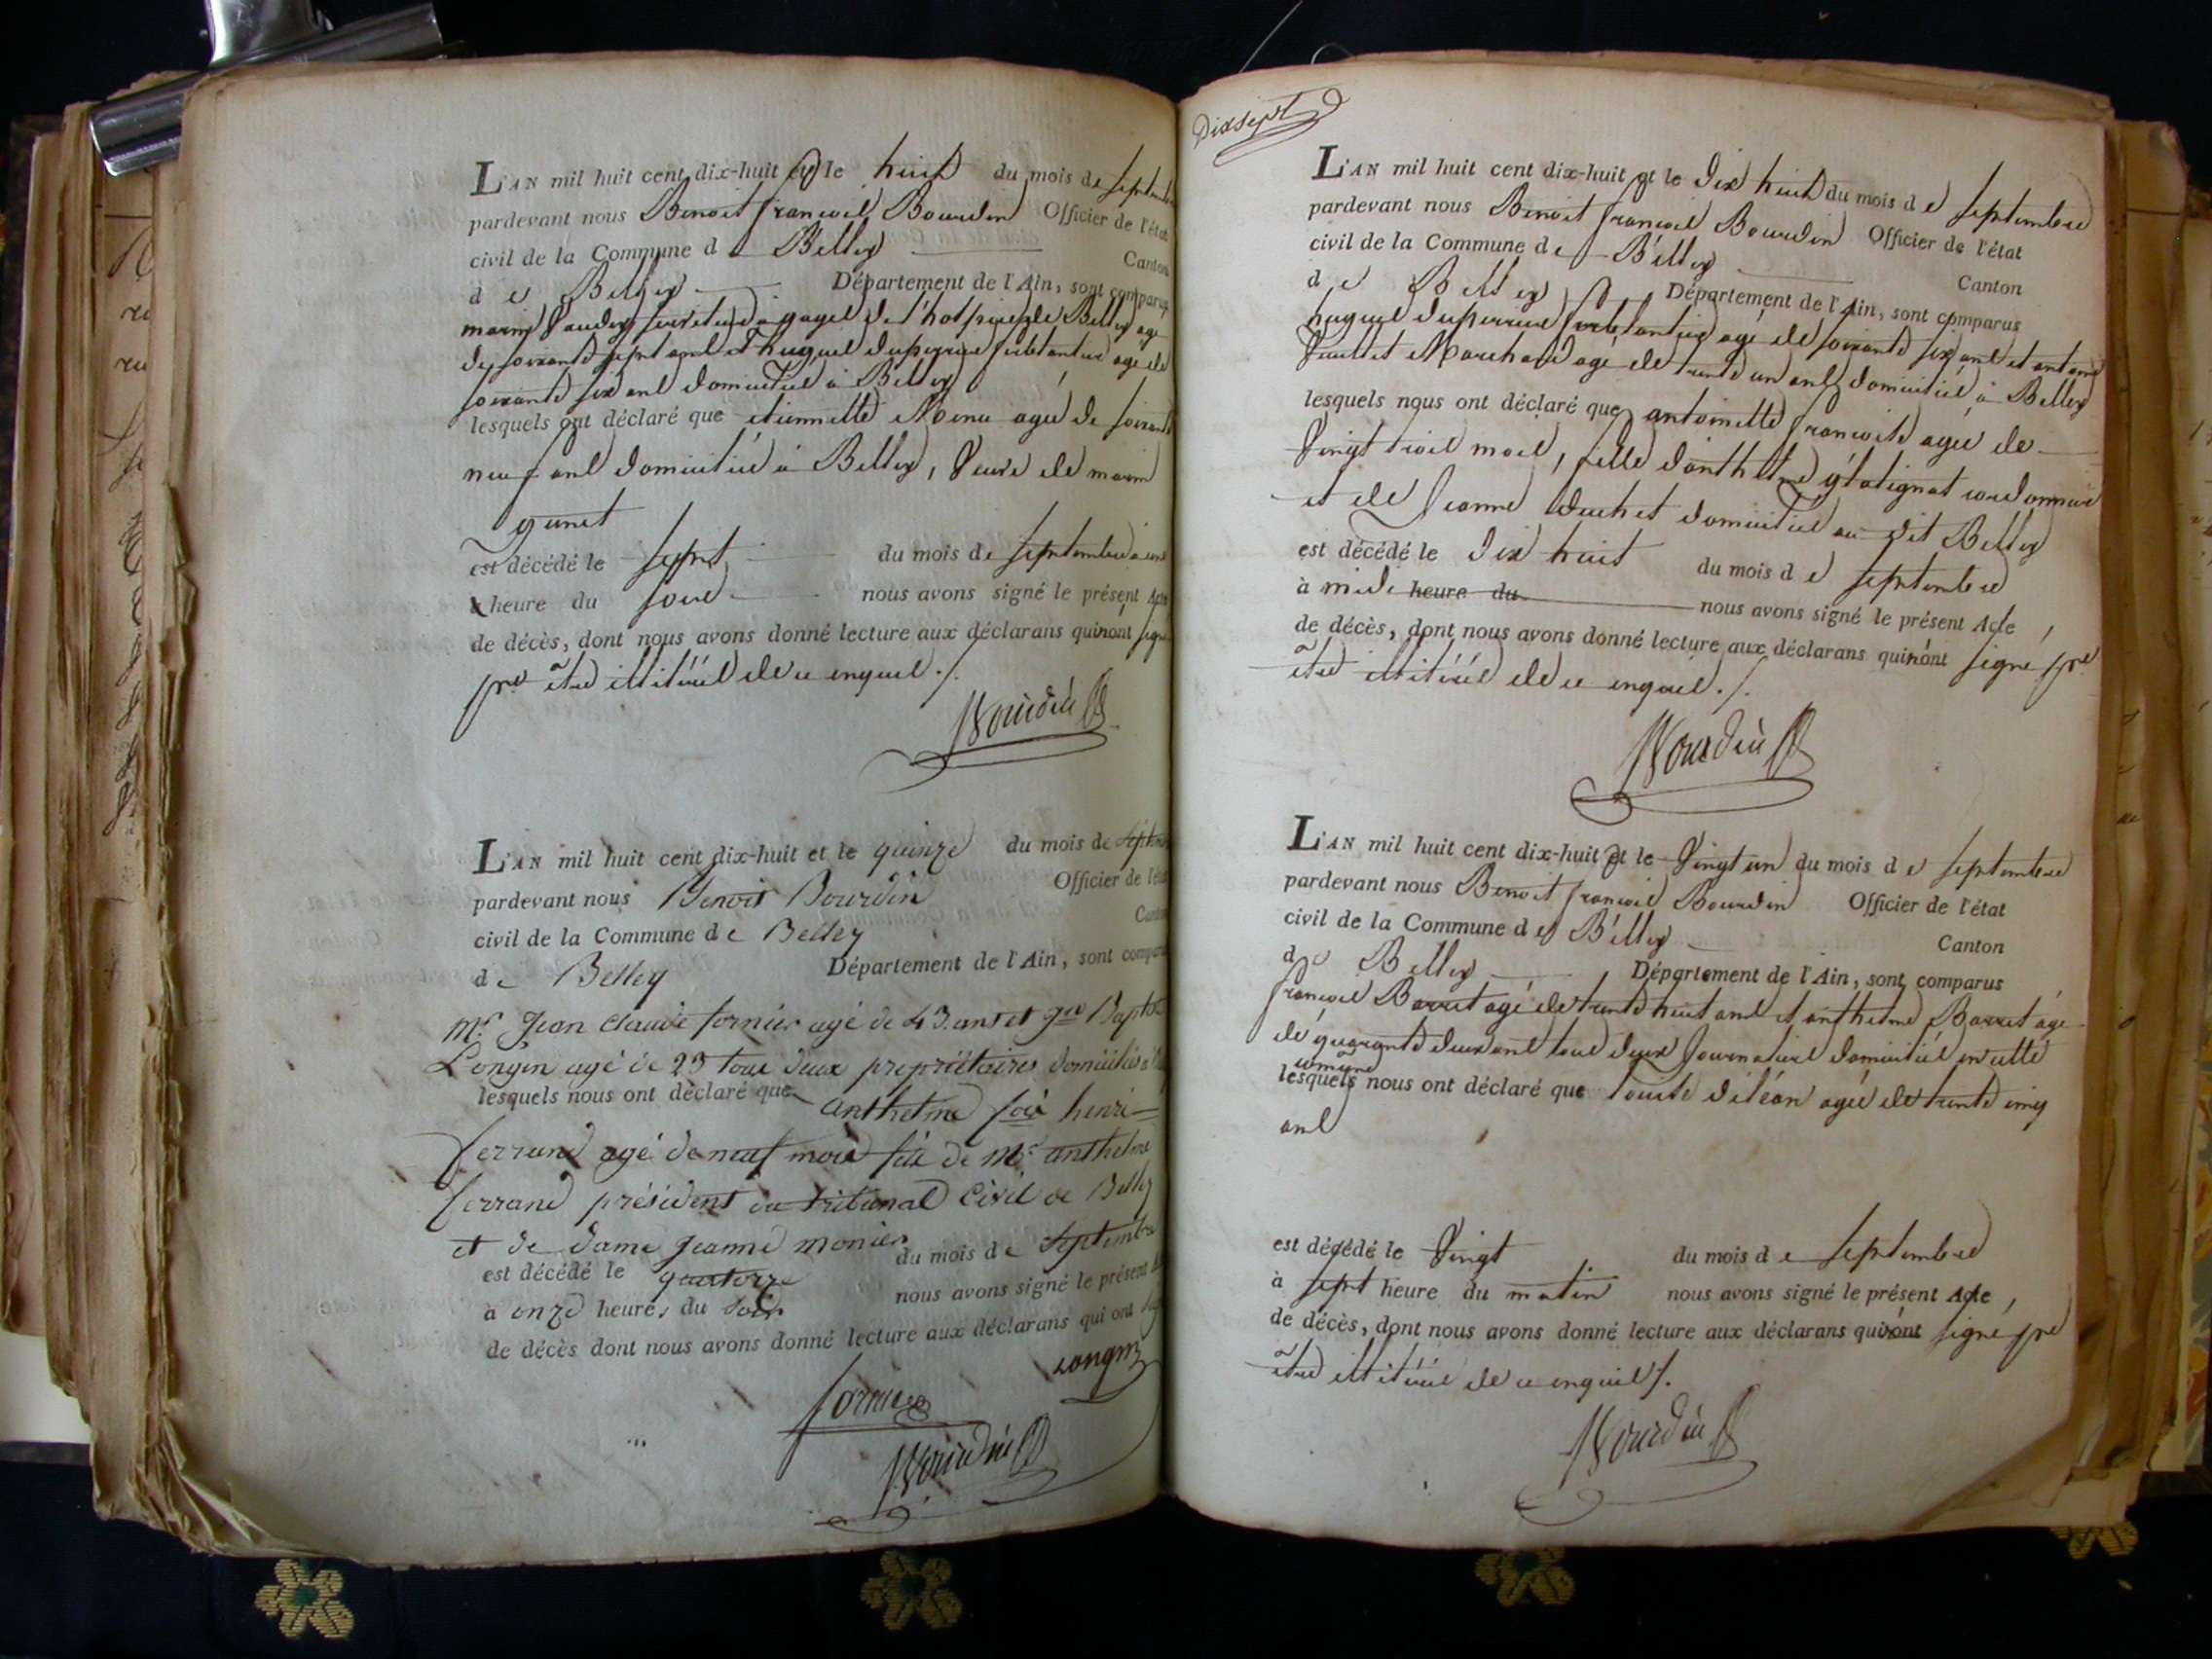 L'AN mil huit cent dix-huit et le huit du mois de septembre
pardevant nous Benoit françois Bourdin Officier de l'état
civil de la Commune de Belley Canton
de Belley Département de l'Ain, sont comparus
marin serviteur à gages de l'hospice de Belley agé
de soixante sept ans et hugues duperrier ferblantier agé de
soixante six ans domiciliés à Belley
lesquels ont déclaré que etiennette agée de soixante
neuf ans domiciliée à Belley, veuve de marin
gunet
est décédé le sept du mois de septembre à
heure du soir nous avons signé le présent Acte
de décès, dont nous avons donné lecture aux déclarans qui n'ont signé
pr. être illitérés de ce enquis ./.
Bourdin
L'AN mil huit cent dix-huit et le quinze du mois de septembre
pardevant nous Benoit Bourdin Officier de l'état
civil de la Commune de Belley Canton
de Belley Département de l'Ain, sont comparus
Mr. Jean Claude fornier agé de 43 ans et Baptiste
Longin agé de 29 tous deux propriétaires domiciliés à
lesquels nous ont déclaré que anthelme henri
ferrand agé de neuf mois fils de Mr. anthelme
ferrand président du tribunal Civil de Belley
et de dame Jeanne monier
est décédé le quatorze du mois de Septembre
à onze heures du soir nous avons signé le présent
de décès dont nous avons donné lecture aux déclarans qui ont
Longin
fornier
Bourdin
Dixsept
L'AN mil huit cent dix-huit et le dix huit du mois de septembre
pardevant nous Benoit françois Bourdin Officier de l'état
civil de la Commune de Belley Canton
de Belley Département de l'Ain, sont comparus
hugues duperrier ferblantier agé de soixante six ans et antoine
Marchand agé de trente un ans domiciliés à Belley
lesquels nous ont déclaré que antoinette françoise agée de
vingt trois mois, fille d'anthelme cordonnier
et de Jeanne domiciliés au dit Belley
est décédé le dix huit du mois de septembre
à midi heure du nous avons signé le présent Acte,
de décès, dont nous avons donné lecture aux déclarans qui n'ont signé pr.
être illitérés de ce enquis ./.
Bourdin
L'AN mil huit cent dix-huit et le vingt un du mois de septembre
pardevant nous Benoit françois Bourdin Officier de l'état
civil de la Commune de Belley Canton
de Belley Département de l'Ain, sont comparus
françois Barret agé de trente huit ans et anthelme Barret agé
de quarante deux ans tous deux Journaliers domiciliés en cette
comune
lesquels nous ont déclaré que agée de trente cinq
ans
est décédé le vingt du mois de septembre
à sept heure du matin nous avons signé le présent Acte,
de décès, dont nous avons donné lecture aux déclarans qui n'ont signé pr
être illitérés de ce enquis ./.
Bourdin